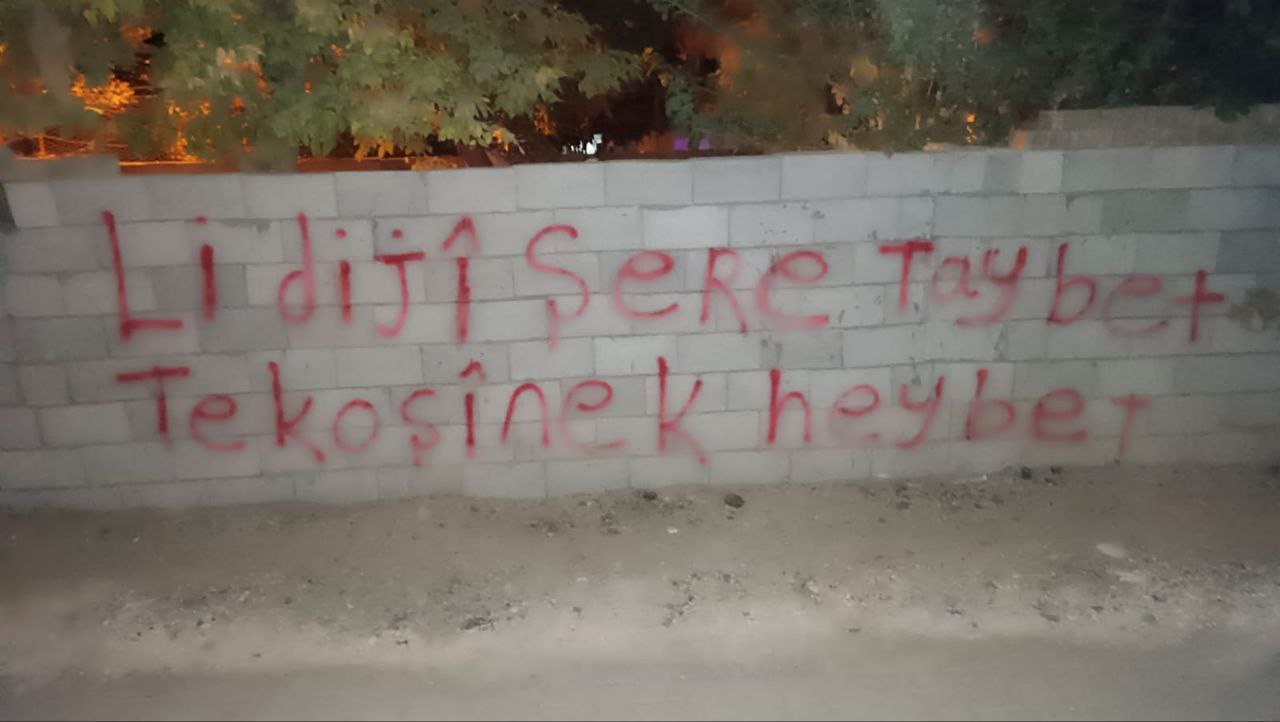 Li dijî Şere Taybet
Tekoşînek heybet